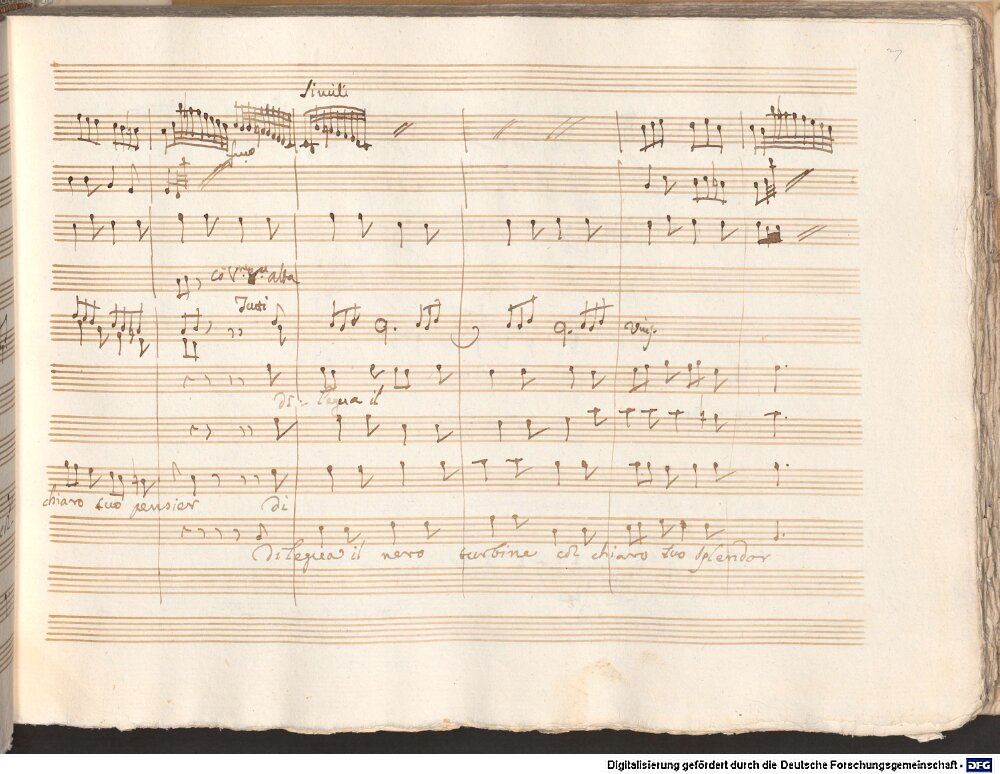 27
Simili
Tutti
di - legua il
chiaro tuo pensier di
Dilegua il nero turbine col chiaro tuo splendor
Digitalisierung gefördert durch die Deutsche Forschungsgemeinschaft - DFG